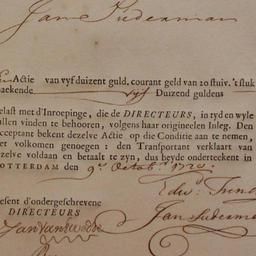 Jan Suderman
Actie van vyf duizent guld. courant geld van 20 stuiv. 't stuk
aekende vyf Duizend guldens
elast met d'Inroepinge, die de DIRECTEURS, in tyd en wyle
ullen vinden te behooren, volgens haar origineelen Inleg. Den
cceptant bekent dezelve Actie op die Conditie aan te nemen,
et volkomen genoegen: den Transportant verklaart van
ezelve voldaan en betaalt te zyn, dus beyde onderteekent in
OTTERDAM den 9 Octob
Edw:
esent d'ondergeschrevene
DIRECTEURS
Jan Suderman